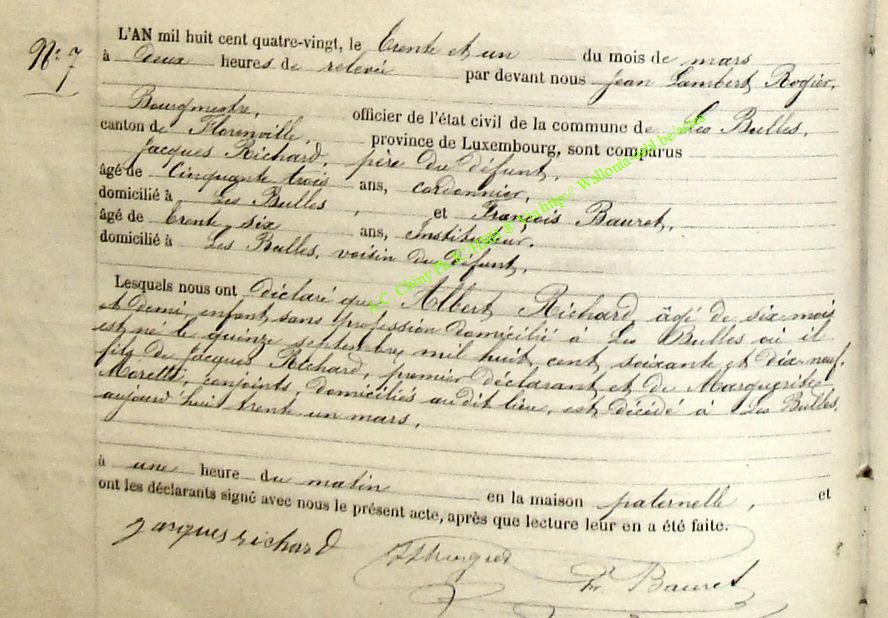 Nº 7
L'AN mil huit cent quatre-vingt, le trente et un du mois de mars
à deux heures de relevée par devant nous Jean Lambert Rogier,
Bourgmestre, officier de l'état civil de la commune de Les Bulles,
canton de Florenville, province de Luxembourg, sont comparus
Jacques Richard, père du défunt,
âgé de Cinquante trois ans, cordonnier,
domicilié à Les Bulles, et François Bauret,
âgé de trente six ans, Instituteur,
domicilié à Les Bulles, voisin du défunt,
Lesquels nous ont déclaré que Albert Richard, âgé de six mois
et demi, enfant sans profession domicilié à Les Bulles où il
est né le quinze septembre mil huit cent soixante et dix-neuf,
fils de Jacques Richard, premier déclarant et de Marguerite
Morette, conjoints, domiciliés au dit lieu, est décédé à Les Bulles,
aujourd'hui trente un mars,
à une heure du matin en la maison paternelle, et
ont les déclarants signé avec nous le présent acte, après que lecture leur en a été faite.
jacques richard
Fr. Bauret